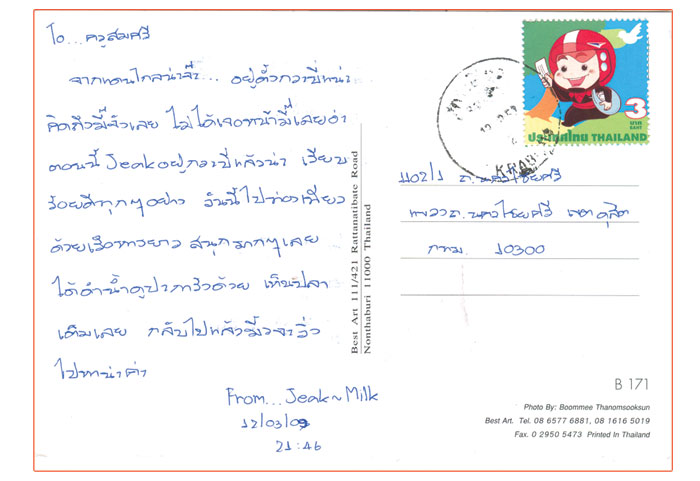 To... ครูสมศรี
จากแดนไกลน่าจ๊ะ... อยู่ตั้งกระบี่หน่า
คิดถึงมี้จังเลย ไม่ได้เจอหน้ามี้เลยอ่า
ตอนนี้ Jeakอยู่กระบี่แล้วนา เรียบ
ร้อยดีทุกๆอย่าง วันนี้ไปท่องเที่ยว
ด้วยเรือหางยาว สนุกมากๆเลย
ได้ดำน้ำดูปะการังด้วย เห็นปลา
เต็มเลย กลับไปแล้วมี้จะวิ่ง
ไปหาน่าค่า
From... Jeak~Milk
12/03/09
21:46
Best Art 111/421 Rattanatibate Road
Nonthaburi 11000 Thailand
3
บาท
BAHT
ประเทศไทย THAILAND
KRABI
ถ.นครไชยศรี
แขวงถ.นครไชยศรี เขตดุสิต
กทม. 10300
B 171
Photo By: Boommee Thanomsooksun
Best Art. Tel. 08 6577 6881, 08 1616 5019
Fax. 0 2950 5473 Printed In Thailand